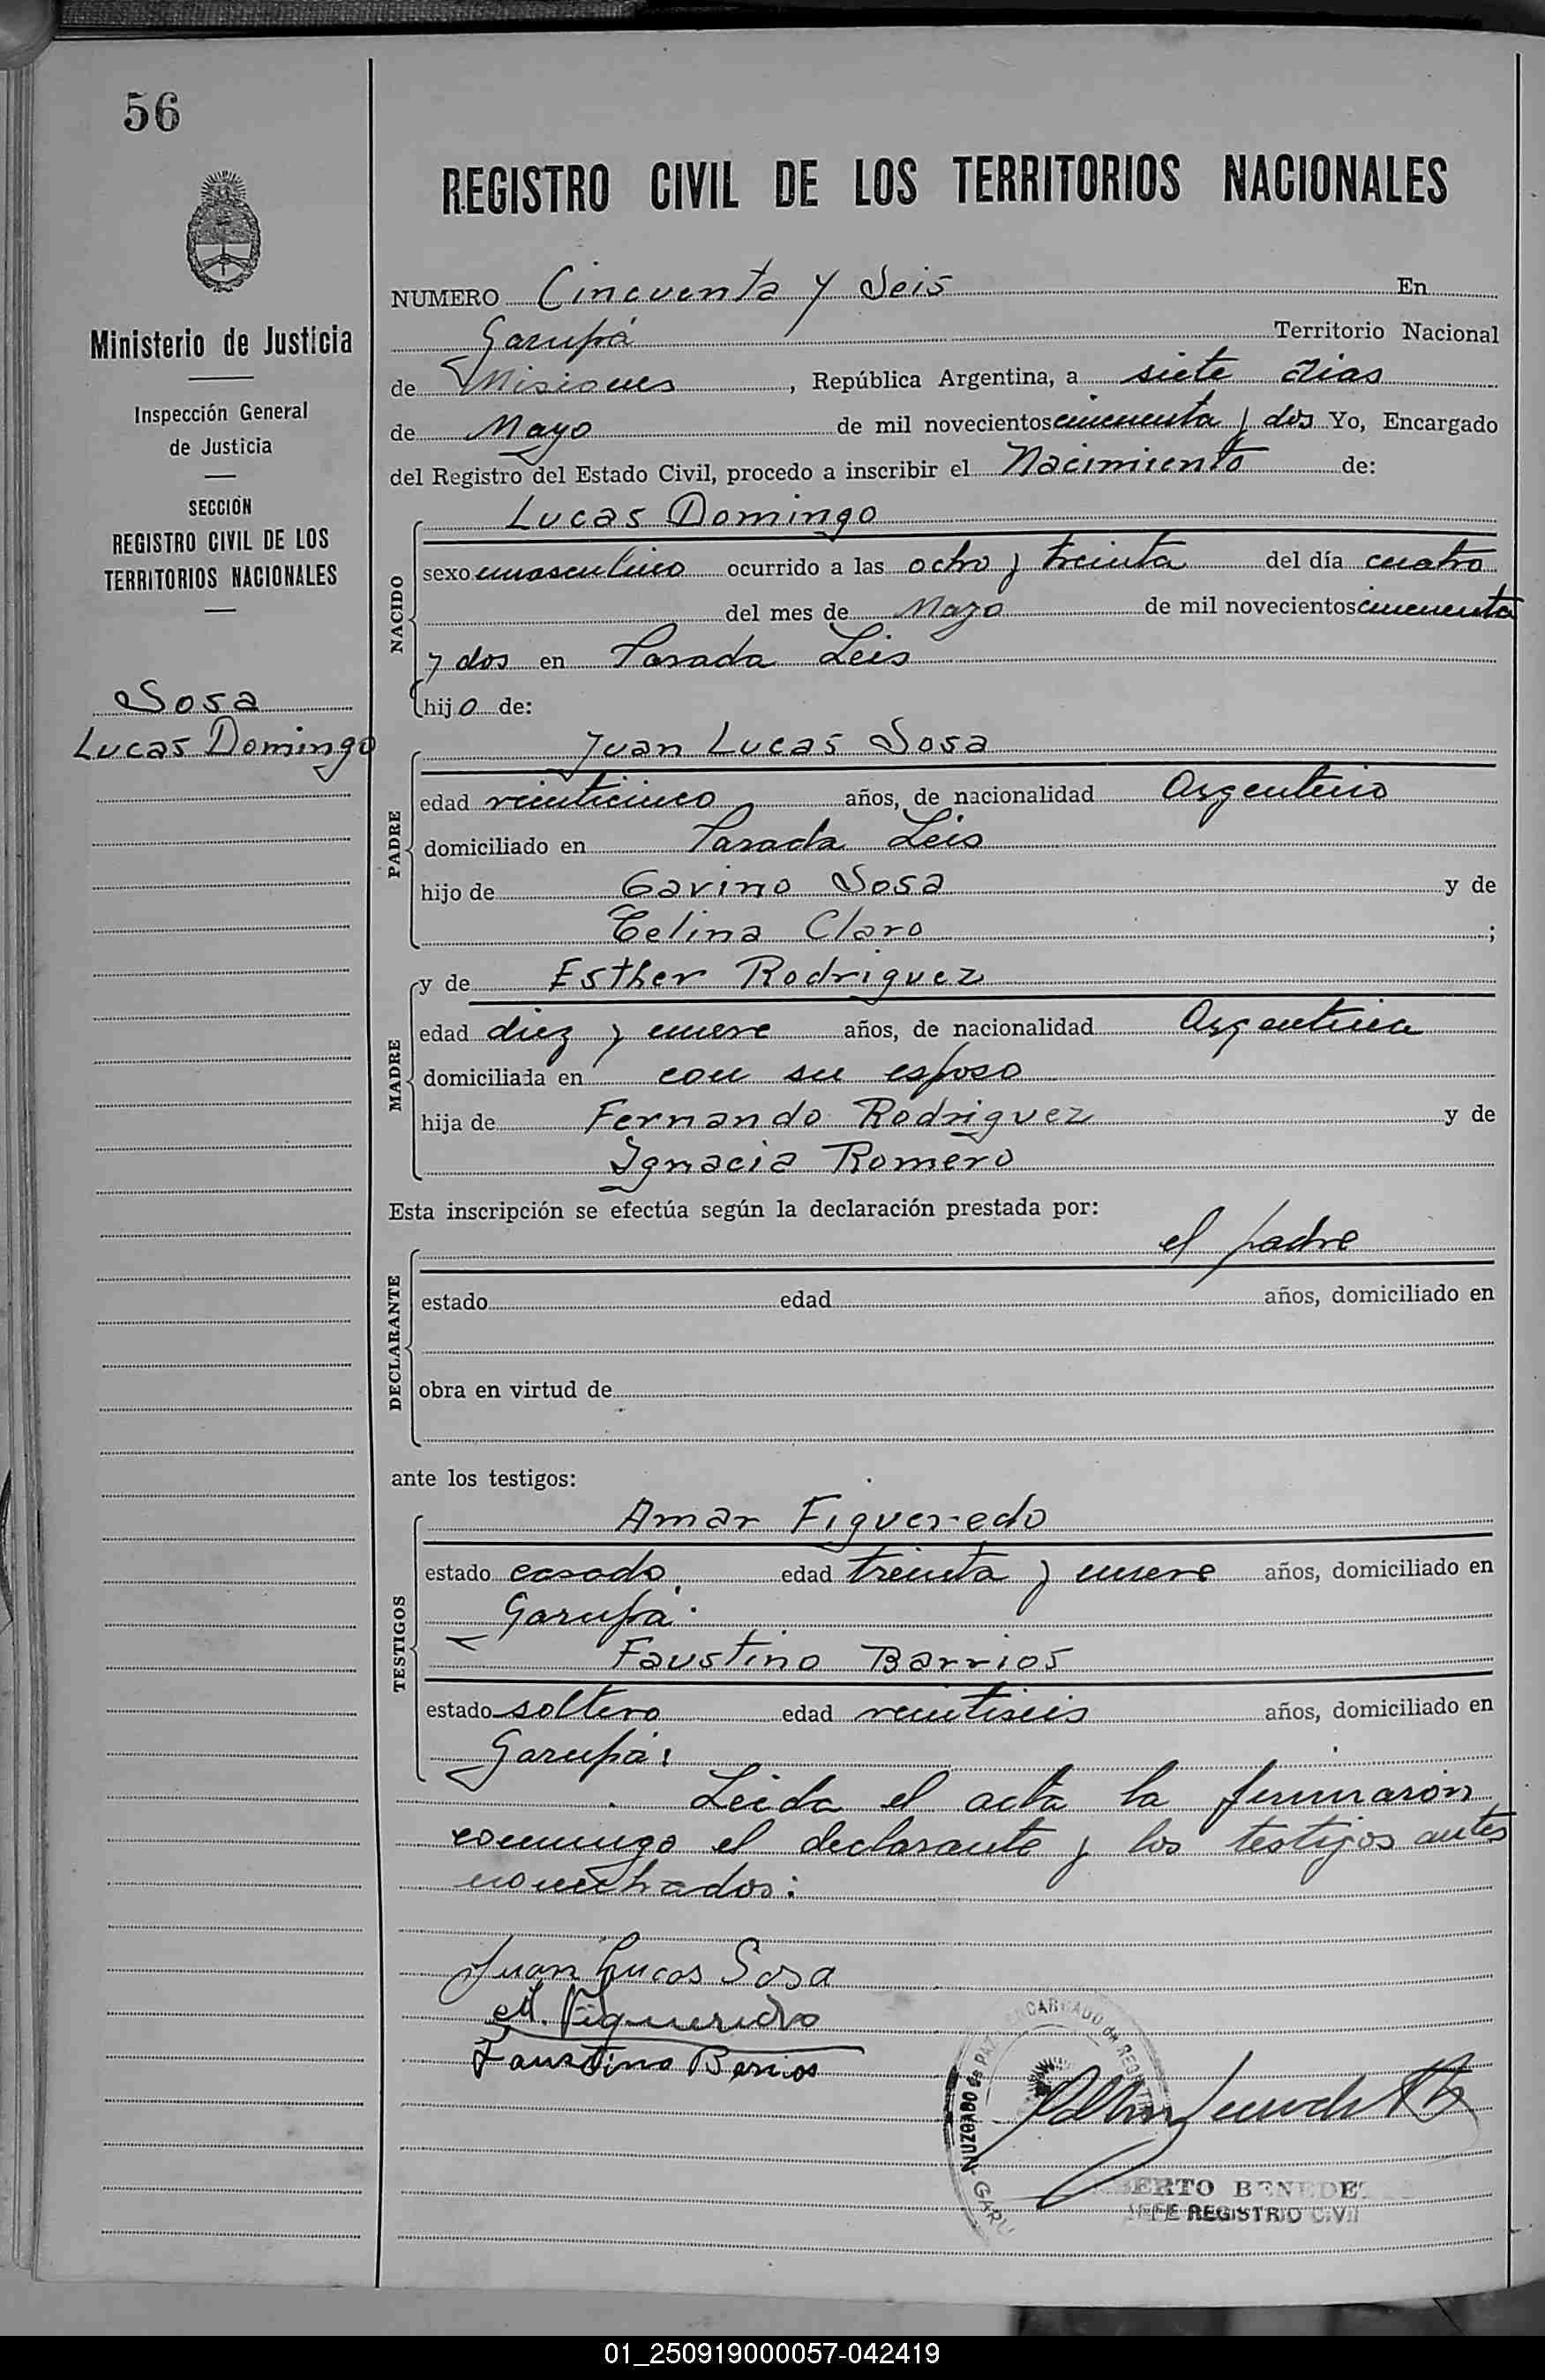 56
Ministerio de Justicia
Inspección General
de Justicia
SECCIÓN
REGISTRO CIVIL DE LOS
TERRITORIOS NACIONALES
Sosa
Lucas Domingo
REGISTRO CIVIL DE LOS TERRITORIOS NACIONALES
NUMERO Cincuenta y Seis En
Garupá Territorio Nacional
de Misiones, República Argentina, a siete dias
de Mayo de mil novecientos cincuenta y dos Yo, Encargado
del Registro del Estado Civil, procedo a inscribir el Nacimiento de:
NACIDO
Lucas Domingo
sexo masculino ocurrido a las ocho y treinta del día cuatro
del mes de Mayo de mil novecientos cincuenta
y dos en Parada Leis
hijo de:
PADRE
Juan Lucas Sosa
edad veinticinco años, de nacionalidad Argentino
domiciliado en Parada Leis
hijo de Gavino Sosa y de
Celina Claro ;
MADRE
y de Esther Rodriguez
edad diez y nueve años, de nacionalidad Argentina
domiciliada en con su esposo
hija de Fernando Rodriguez y de
Ignacia Romero
Esta inscripción se efectúa según la declaración prestada por:
DECLARANTE
el padre
estado edad años, domiciliado en
obra en virtud de
ante los testigos:
TESTIGOS
Amar Figueredo
estado casado edad treinta y nueve años, domiciliado en
Garupá.
Faustino Barrios
estado soltero edad veintiseis años, domiciliado en
Garupá:
Leida el acta la firmarón
conmigo el declarante y los testigos antes
nombrados:
Juan Lucas Sosa
A. Figueredo
Faustino Barrios
JUZGADO de PAZ ENCARGADO de REGISTRO
GARU
BERTO BENEDE
JEFE REGISTRO CIVIL
01_250919000057-042419